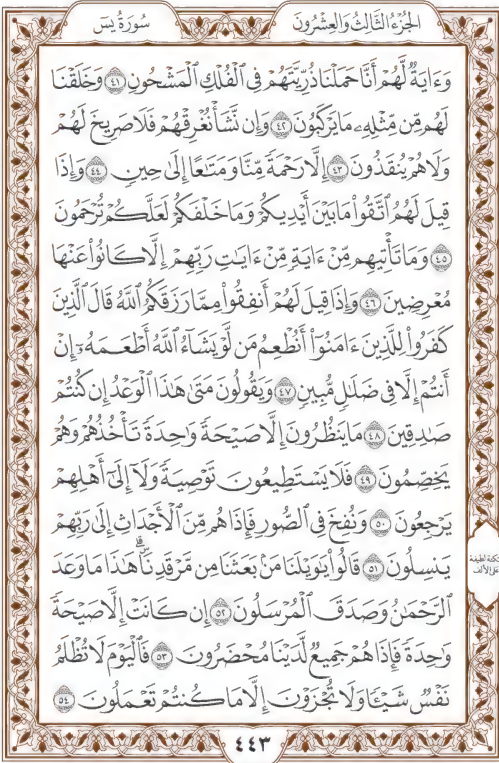 الجُزْءُ الثَّالِثُ وَالعِشْرُونَ
سُورَةُ يسٓ
وَءَايَةٌ لَّهُمْ أَنَّا حَمَلْنَا ذُرِّيَّتَهُمْ فِي ٱلْفُلْكِ ٱلْمَشْحُونِ ٤١ وَخَلَقْنَا
لَهُم مِّن مِّثْلِهِۦ مَا يَرْكَبُونَ ٤٢ وَإِن نَّشَأْ نُغْرِقْهُمْ فَلَا صَرِيخَ لَهُمْ
وَلَا هُمْ يُنقَذُونَ ٤٣ إِلَّا رَحْمَةً مِّنَّا وَمَتَـٰعًا إِلَىٰ حِينٍ ٤٤ وَإِذَا
قِيلَ لَهُمُ ٱتَّقُوا۟ مَا بَيْنَ أَيْدِيكُمْ وَمَا خَلْفَكُمْ لَعَلَّكُمْ تُرْحَمُونَ
٤٥ وَمَا تَأْتِيهِم مِّنْ ءَايَةٍ مِّنْ ءَايَـٰتِ رَبِّهِمْ إِلَّا كَانُوا۟ عَنْهَا
مُعْرِضِينَ ٤٦ وَإِذَا قِيلَ لَهُمْ أَنفِقُوا۟ مِمَّا رَزَقَكُمُ ٱللَّهُ قَالَ ٱلَّذِينَ
كَفَرُوا۟ لِلَّذِينَ ءَامَنُوٓا۟ أَنُطْعِمُ مَن لَّوْ يَشَآءُ ٱللَّهُ أَطْعَمَهُۥٓ إِنْ
أَنتُمْ إِلَّا فِي ضَلَـٰلٍ مُّبِينٍ ٤٧ وَيَقُولُونَ مَتَىٰ هَـٰذَا ٱلْوَعْدُ إِن كُنتُمْ
صَـٰدِقِينَ ٤٨ مَا يَنظُرُونَ إِلَّا صَيْحَةً وَٰحِدَةً تَأْخُذُهُمْ وَهُمْ
يَخِصِّمُونَ ٤٩ فَلَا يَسْتَطِيعُونَ تَوْصِيَةً وَلَآ إِلَىٰٓ أَهْلِهِمْ
يَرْجِعُونَ ٥٠ وَنُفِخَ فِي ٱلصُّورِ فَإِذَا هُم مِّنَ ٱلْأَجْدَاثِ إِلَىٰ رَبِّهِمْ
يَنسِلُونَ ٥١ قَالُوا۟ يَـٰوَيْلَنَا مَنۢ بَعَثَنَا مِن مَّرْقَدِنَا ۜ هَـٰذَا مَا وَعَدَ
سكتة لطيفة
على الألف
ٱلرَّحْمَـٰنُ وَصَدَقَ ٱلْمُرْسَلُونَ ٥٢ إِن كَانَتْ إِلَّا صَيْحَةً
وَٰحِدَةً فَإِذَا هُمْ جَمِيعٌ لَّدَيْنَا مُحْضَرُونَ ٥٣ فَٱلْيَوْمَ لَا تُظْلَمُ
نَفْسٌ شَيْـًٔا وَلَا تُجْزَوْنَ إِلَّا مَا كُنتُمْ تَعْمَلُونَ ٥٤
٤٤٣